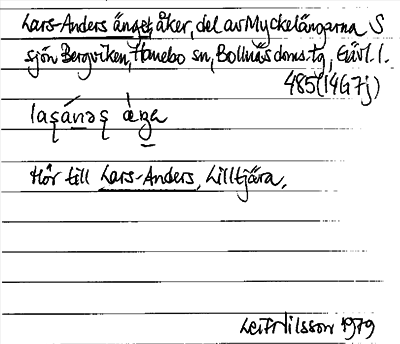 Lars-Anders änget, åker, del av Myckelängarna S
sjön Bergviken, Hanebo sn, Bollnäs doms.tg, Gävl. l.
485 (14G7j)
Hör till Lars-Anders, Lilltjära.
Leif Nilsson 1979